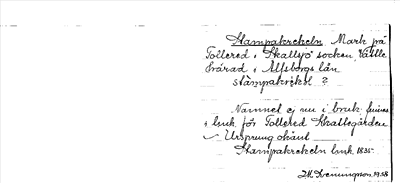 Stampakrekeln Mark på
Tollered i Skallsjö socken, Vättle
härad i Älfsborgs län
stampakrekel ?
Namnet ej nu i bruk
i bruk för Tollered Skattegården
Ursprung okänt
Stampakrekeln bruk. 1835.
1938